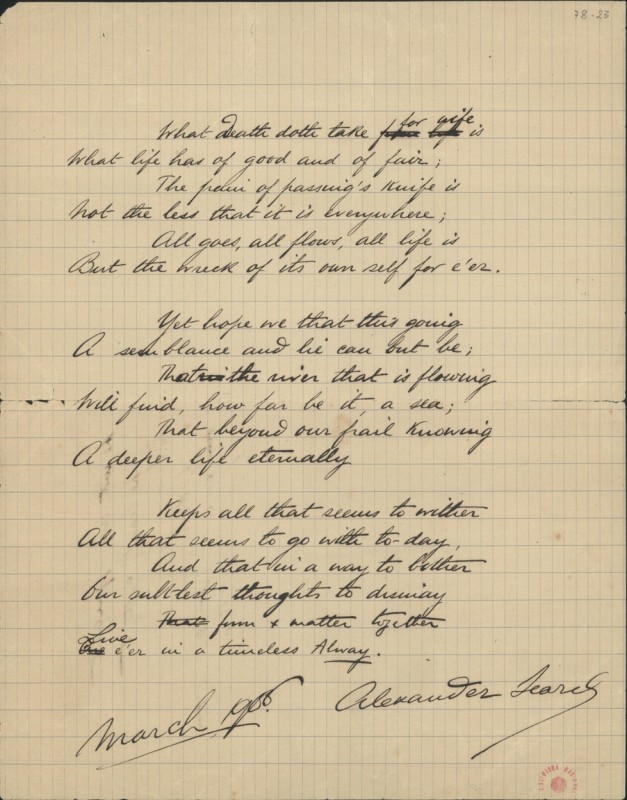 78-23
What Death doth take for wife is
What life has of good and of fair;
The pain of passing's knife is
Not the less that it is everywhere;
All goes, all flows, all life is
But the wreck of its own self for e'er.
Yet hope we that this going
A semblance and lie can but be;
That the river that is flowing
Will find, how far be it, a sea;
That beyond our frail knowing
A deeper life eternally
Keeps all that seems to wither
All that seems to go with to-day,
And that in a way to bother
Our subtlest thoughts to dismay
That form + matter together
Live e'er in a timeless Alway.
March, 1906.
Alexander Search